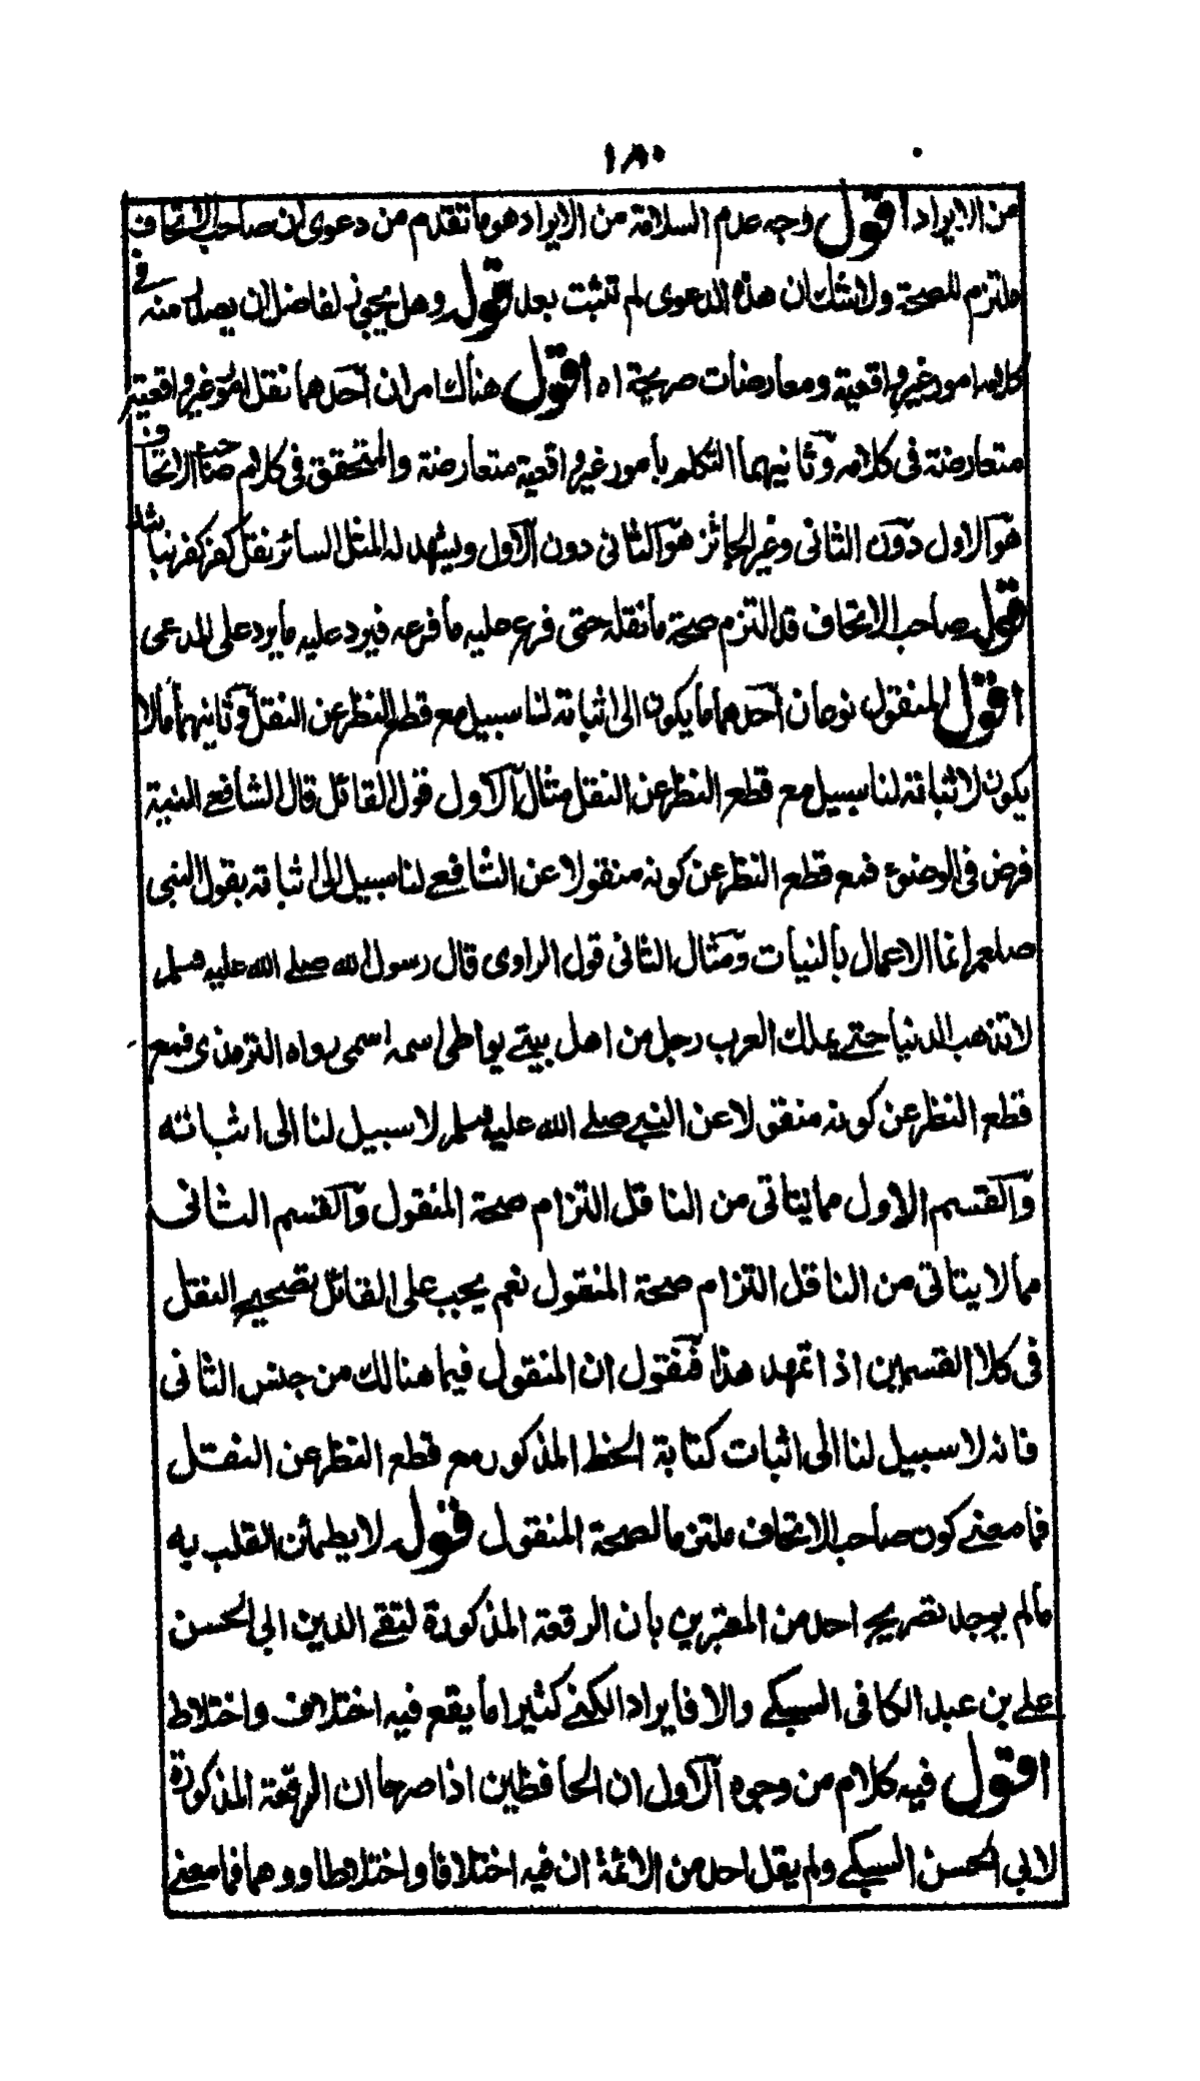 ١٨٠
من الايراد اقول وجه عدم السلامة من الايراد هو ما تقدم من دعوى ان صاحب الاتحاف
ملتزم للصحة ولا شك ان هذه الدعوى لم تثبت بعد قوله وهل يجوز لفاضل ان يصدر منه في
كلامه امور غير واقعية ومعارضات صريحة اه اقول هناك امران احدهما نقل امور غير واقعية
متعارضة في كلامه وثانيهما التكلم بأمور غير واقعية متعارضة والمتحقق في كلام صاحب الاتحاف
هو الاول دون الثاني وغير الجائز هو الثاني دون الاول ويشهد له المثل السائر نقل كفر كفر نباشد
قوله صاحب الاتحاف قد التزم صحة ما نقله حتى فرع عليه ما فرعه فيرد عليه ما يرد على المدعى
اقول المنقول نوعان احدهما ما يكون الى اثباته لنا سبيل مع قطع النظر عن النقل وثانيهما ما لا
يكون لاثباته لنا سبيل مع قطع النظر عن النقل مثال الاول قول القائل قال الشافعے النية
فرض في الوضوء فمع قطع النظر عن كونه منقولا عن الشافعے لنا سبيل الى اثباته بقول النبي
صلعم انما الاعمال بالنيات ومثال الثاني قول الراوى قال رسول الله صلے الله عليه وسلم
لا تذهب الدنيا حتے يملك العرب رجل من اهل بيتے يواطى اسمه اسمى رواه الترمذى فمع
قطع النظر عن كونه منقولا عن النبے صلے الله عليه وسلم لا سبيل لنا الى اثباته
والقسم الاول مما يتاتى من الناقل التزام صحة المنقول والقسم الثانى
مما لا يتاتى من الناقل التزام صحة المنقول نعم يجب على القائل تصحيح النقل
فى كلا القسمين اذا تمهد هذا فنقول ان المنقول فيما هنالك من جنس الثانى
فانه لا سبيل لنا الى اثبات كتابة الخط المذكور مع قطع النظر عن النقل
فما معنے كون صاحب الاتحاف ملتزما لصحة المنقول قوله لا يطمئن القلب به
مالم يوجد تصريح احد من المعتبرين بان الرقعة المذكورة لتقے الدين ابى الحسن
علے بن عبد الكافى السبكے والا فايراد الكنے كثيرا ما يقع فيه اختلاف واختلاط
اقول فيه كلام من وجوه الاول ان الحافظين اذا صرحا ان الرقعة المذكورة
لابي الحسن السبكے ولم يقل احد من الائمة ان فيه اختلافا واختلاطا ووهما فما معنے